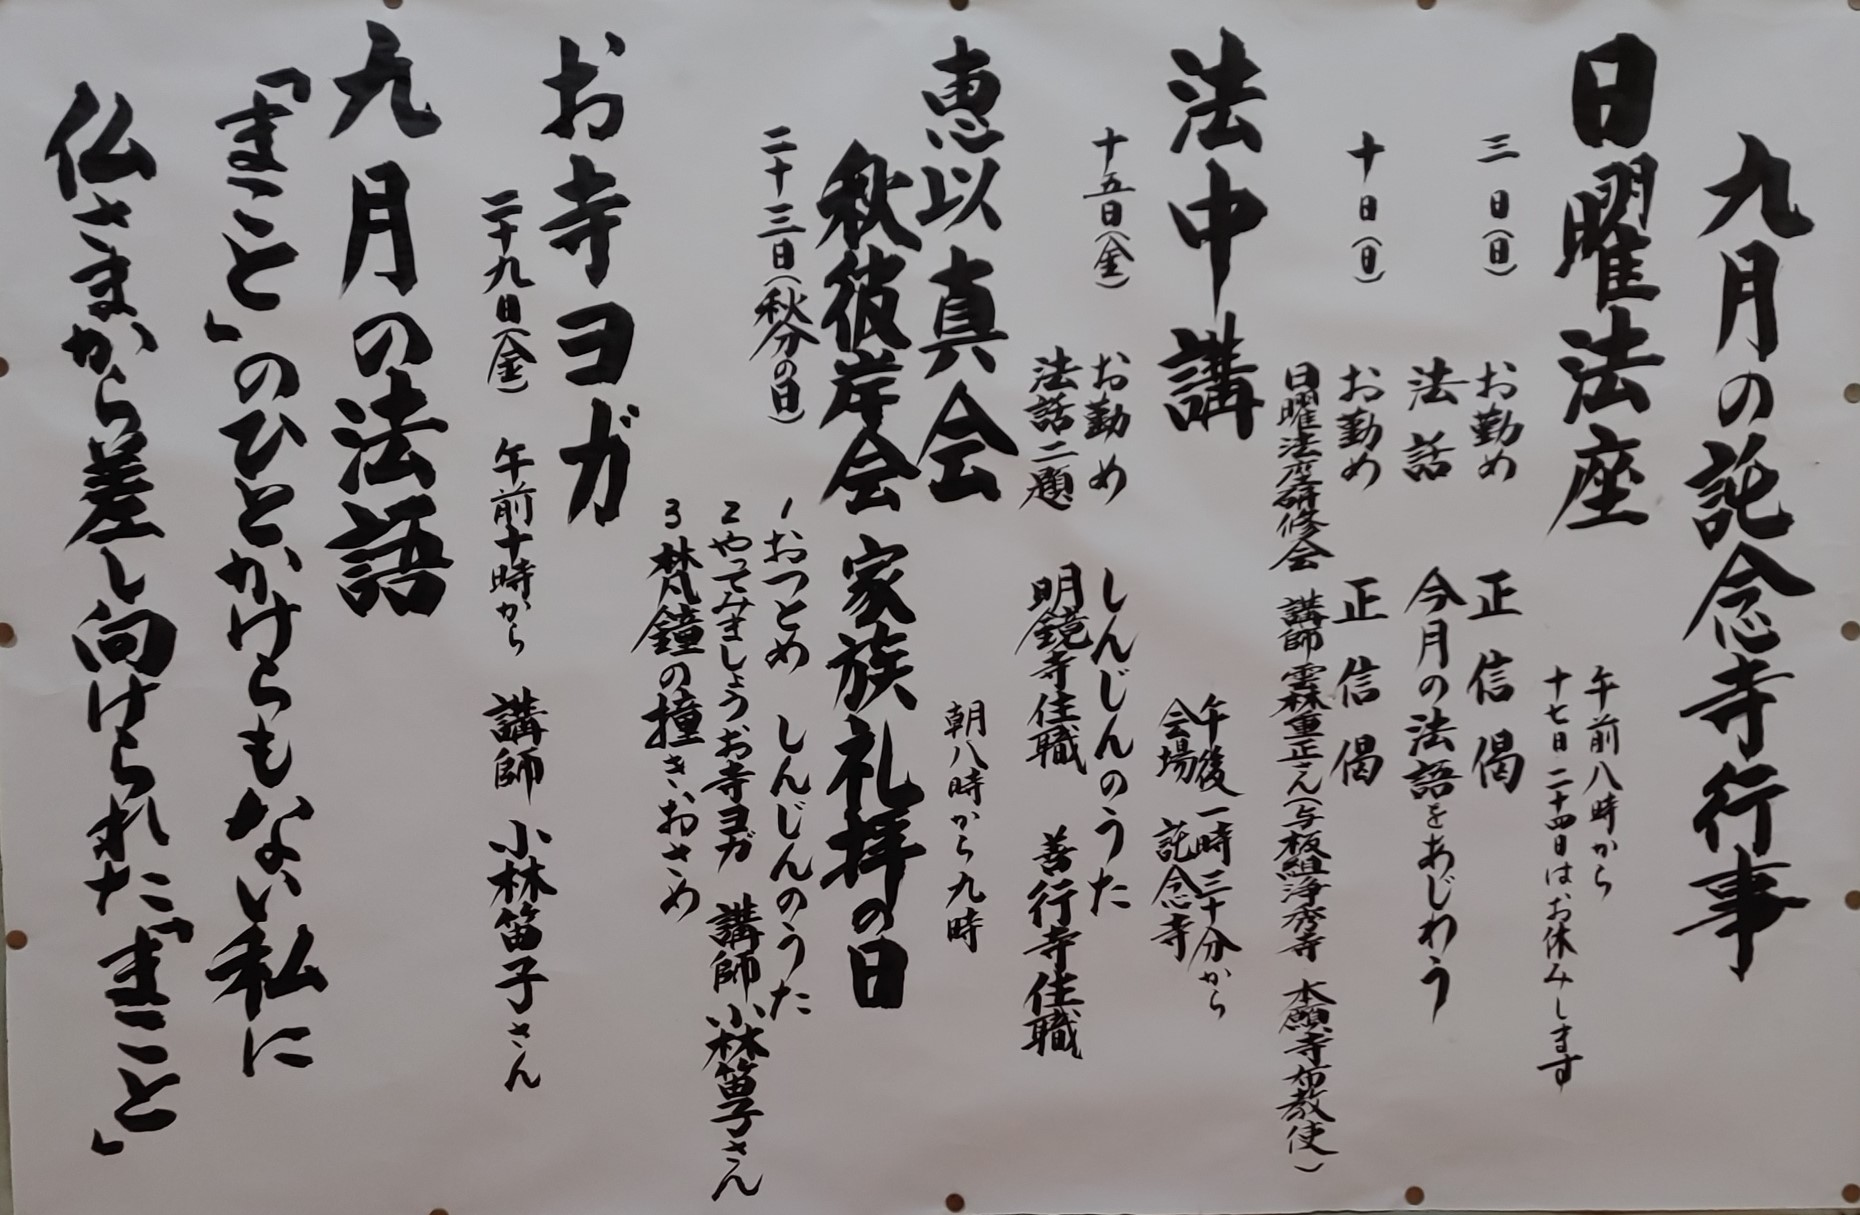 九月の託念寺行事
日曜法座
午前八時から
十七日二十四日はお休みします
三日(日)
お勤め 正信偈
法話 今月の法語をあじわう
十日(日)
お勤め 正信偈
日曜法座研修会 講師 雲林重正さん(与板組浄秀寺 本願寺布教使)
法中講
午後一時三十分から
会場 託念寺
十五日(金)
お勤め しんじんのうた
法話二題 明鏡寺住職 善行寺住職
恵以真会
朝八時から九時
秋彼岸会 家族礼拝の日
二十三日(秋分の日)
1おつとめ しんじんのうた
2やってみましょうお寺ヨガ 講師 小林笛子さん
3梵鐘の撞きおさめ
お寺ヨガ
二十九日(金) 午前十時から 講師 小林笛子さん
九月の法語
「まこと」のひとかけらもない私に
仏さまから差し向けられた「まこと」